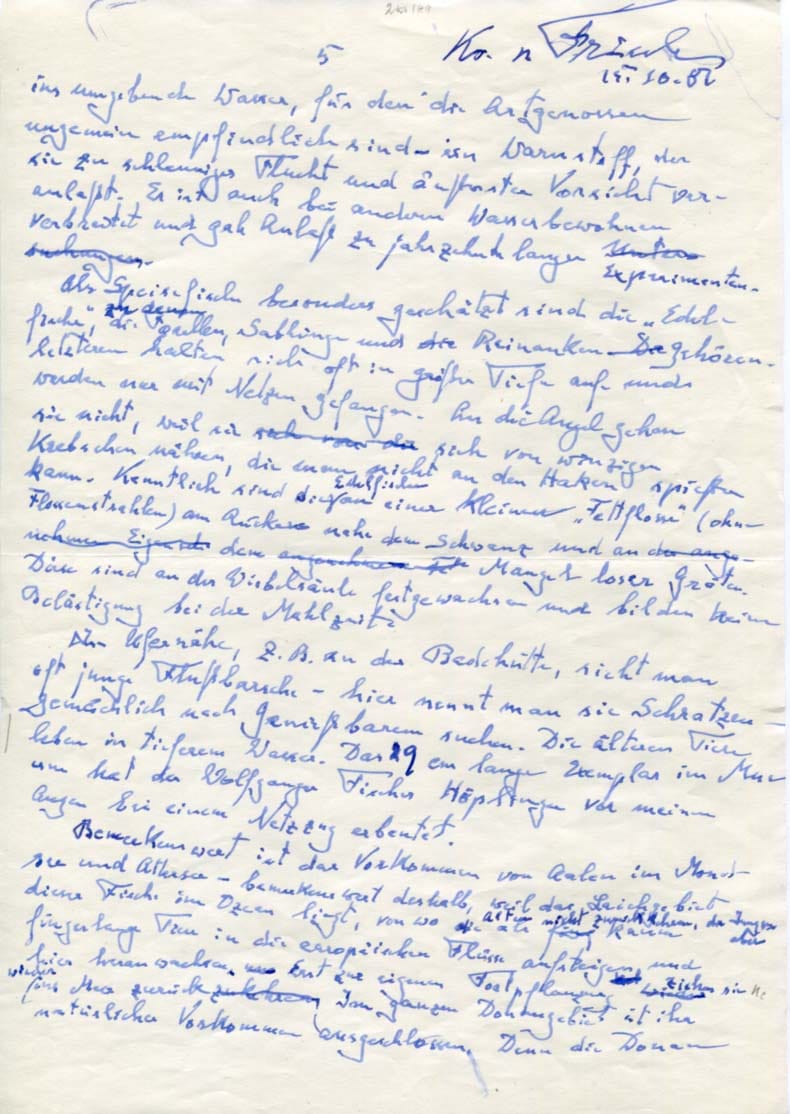 5
15. 10. 81
ins umgebende Wasser, für den die Artgenossen
ungemein empfindlich sind – ein Warnstoff, der
sie zu schleuniger Flucht und äußerster Vorsicht ver-
anlaßt. Er ist auch bei anderen Wasserbewohnern
verbreitet und gab Anlaß zu jahrzehntelangen Unter-
suchungen. Experimenten.
Als Speisefische besonders geschätzt sind die „Edel-
fische", zu denen die Forellen, Saiblinge und die Reinanken gehören.
letzteren halten sich oft in großer Tiefe auf und
werden nur mit Netzen gefangen. An die Angel gehen
sie nicht, weil sie sich von winzigen
Krebschen nähren, die man nicht an den Haken spießen
kann. Kenntlich sind die Edelfische an einer kleinen „Fettflosse" (ohne
Flossenstrahlen) am Rücken nahe dem Schwanz und an der ange-
nehmen Eigensch dem Mangel loser Gräten.
Diese sind an der Wirbelsäule festgewachsen und bilden keine
Belästigung bei der Mahlzeit.
In Ufernähe, z. B. an der Badehütte, sieht man
oft junge Flußbarsche – hier nennt man sie Schratzen –
gemächlich nach Genießbarem suchen. Die älteren Tiere
leben in tieferem Wasser. Das 29 cm lange Exemplar im Mus-
eum hat der Wolfganger Fischer Höplinger vor meinen
Augen bei einem Netzzug erbeutet.
Bemerkenswert ist das Vorkommen von Aalen im Mond-
see und Attersee – bemerkenswert deshalb, weil das Laichgebiet
dieser Fische im Ozean liegt, von wo die Alten nicht zurückkehren, die Jungen aber
fingerlange Tiere in die europäischen Flüsse aufsteigen und
hier heranwachsen. Erst zur eigenen Fortpflanzung ziehen sie
wieder ins Meer zurück. Im ganzen Donaugebiet ist ihr
natürliches Vorkommen ausgeschlossen. Denn die Donau